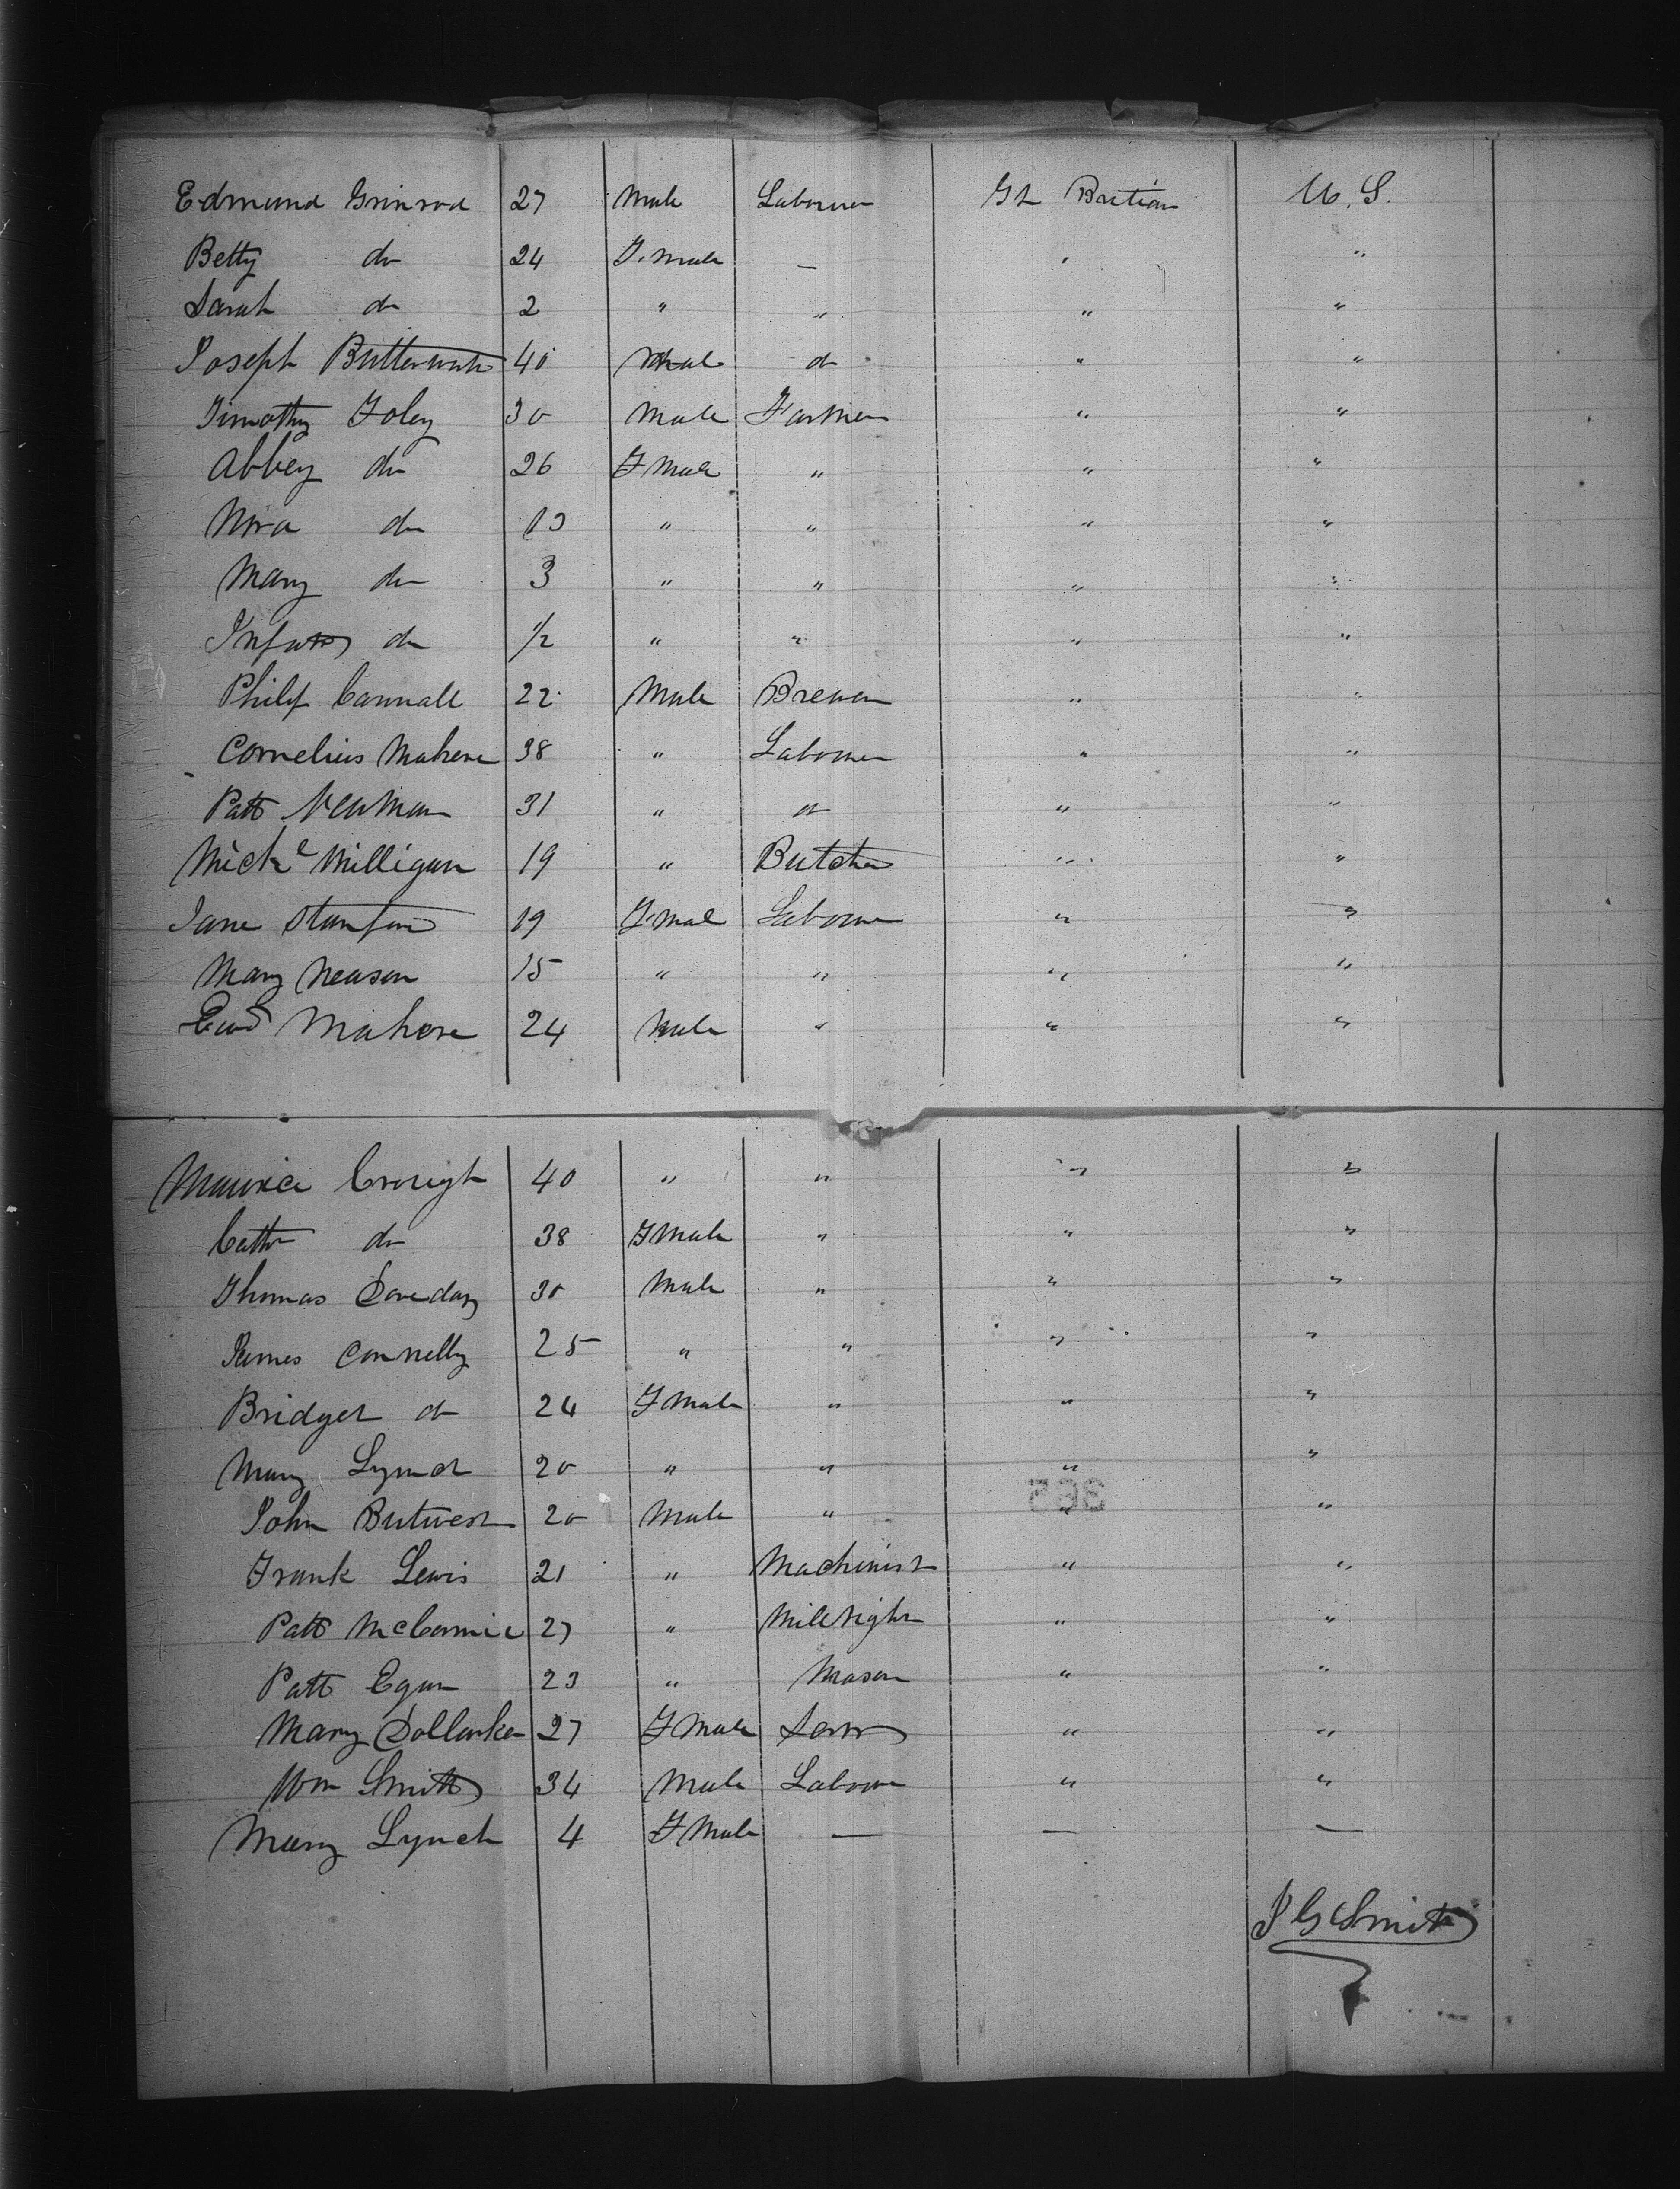 Edmund Grinrod 27 Male Labourer Gt Britian U.S.
Betty do 24 F.Male — " "
Sarah do 2 " " " "
Joseph Butterwirth 40 Male do " "
Timothy Foley 30 Male Farmer " "
Abbey do 26 F Male " " "
Nora do 13 " " " "
Mary do 3 " " " "
Infant do 1/2 " " " "
Philip Cannall 22 Male Brewer " "
Cornelius Mahere 38 " Labourer " "
Patt Newman 31 " do " "
Michl Milligan 19 " Butcher " "
Jane Stanford 19 F.Male Labourer " "
Mary Neason 15 " " " "
Ewd Mahere 24 Male " " "
Maurice Crough 40 " " " "
Cathr do 38 F Male " " "
Thomas Loveday 30 Male " " "
James Connelly 25 " " " "
Bridget do 24 F Male " " "
Mary Lynch 20 " " " "
John Butwest 20 Male " " "
Frank Lewis 21 " Machinist " "
Patt McCormic 27 " Millright " "
Patt Egan 23 " Mason " "
Mary Dollarker 27 F Male Servt " "
Wm Smith 34 Male Labour " "
Mary Lynch 4 F Male — — —
J G Smith